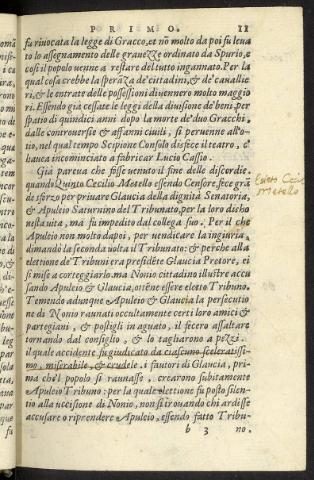 PRIMO. 11
fu rivocata la legge di Gracco, et nõ molto da poi fu leua
to lo assegnamento delle grauezze ordinato da Spurio, e
cosi il popolo venne a restare del tutto ingannato. Per la
qual cosa crebbe la sperãza de' cittadini, & de' cauallie
ri, & le entrate delle possessioni diuennero molto maggio
ri. Essendo già cessate le leggi della diuisione de' beni, per
spatio di quindici anni dopo la morte de' duo Gracchi,
dalle controuersie & affanni ciuili, si peruenne all'o-
tio, nel qual tempo Scipione Consolo disfece il teatro, e'
hauea incominciato a fabricar Lucio Cassio.
Già pareua che fusse venuto il fine delle discordie,
quando Quinto Cecilio Metello essendo Censore, fece grã
de sforzo per priuare Glaucia della dignità Senatoria,
& Apuleio Saturnino del Tribunato, per la loro disho
nesta vita, ma fu impedito dal collega suo. Per il che
Apuleio non molto dapoi, per uendicare la ingiuria,
dimandò la seconda volta il Tribunato: & perche alla
elettione de' Tribuni era presidẽte Glaucia Pretore, ei
si mise a corteggiarlo. ma Nonio cittadino illustre accu
sando Apuleio & Glaucia, ottẽne essere eletto Tribuno.
Temendo adunque Apuleio & Glaucia la persecutio
ne di Nonio raunati occultamente certi loro amici &
partegiani, & postigli in aguato, il fecero assaltare
tornando dal consiglio, & lo tagliarono a pezzi.
il quale accidente fu giudicato da ciascuno sceleratissi-
mo, miserabile, & crudele. i fautori di Glaucia, pri-
ma che'l popolo si raunasse, crearono subitamente
Apuleio Tribuno: per la quale elettione fu posto silen-
tio alla uccisione di Nonio, non si trouando chi ardisse
accusare o riprendere Apuleio, essendo fatto Tribu-
b 3 no.
Metello